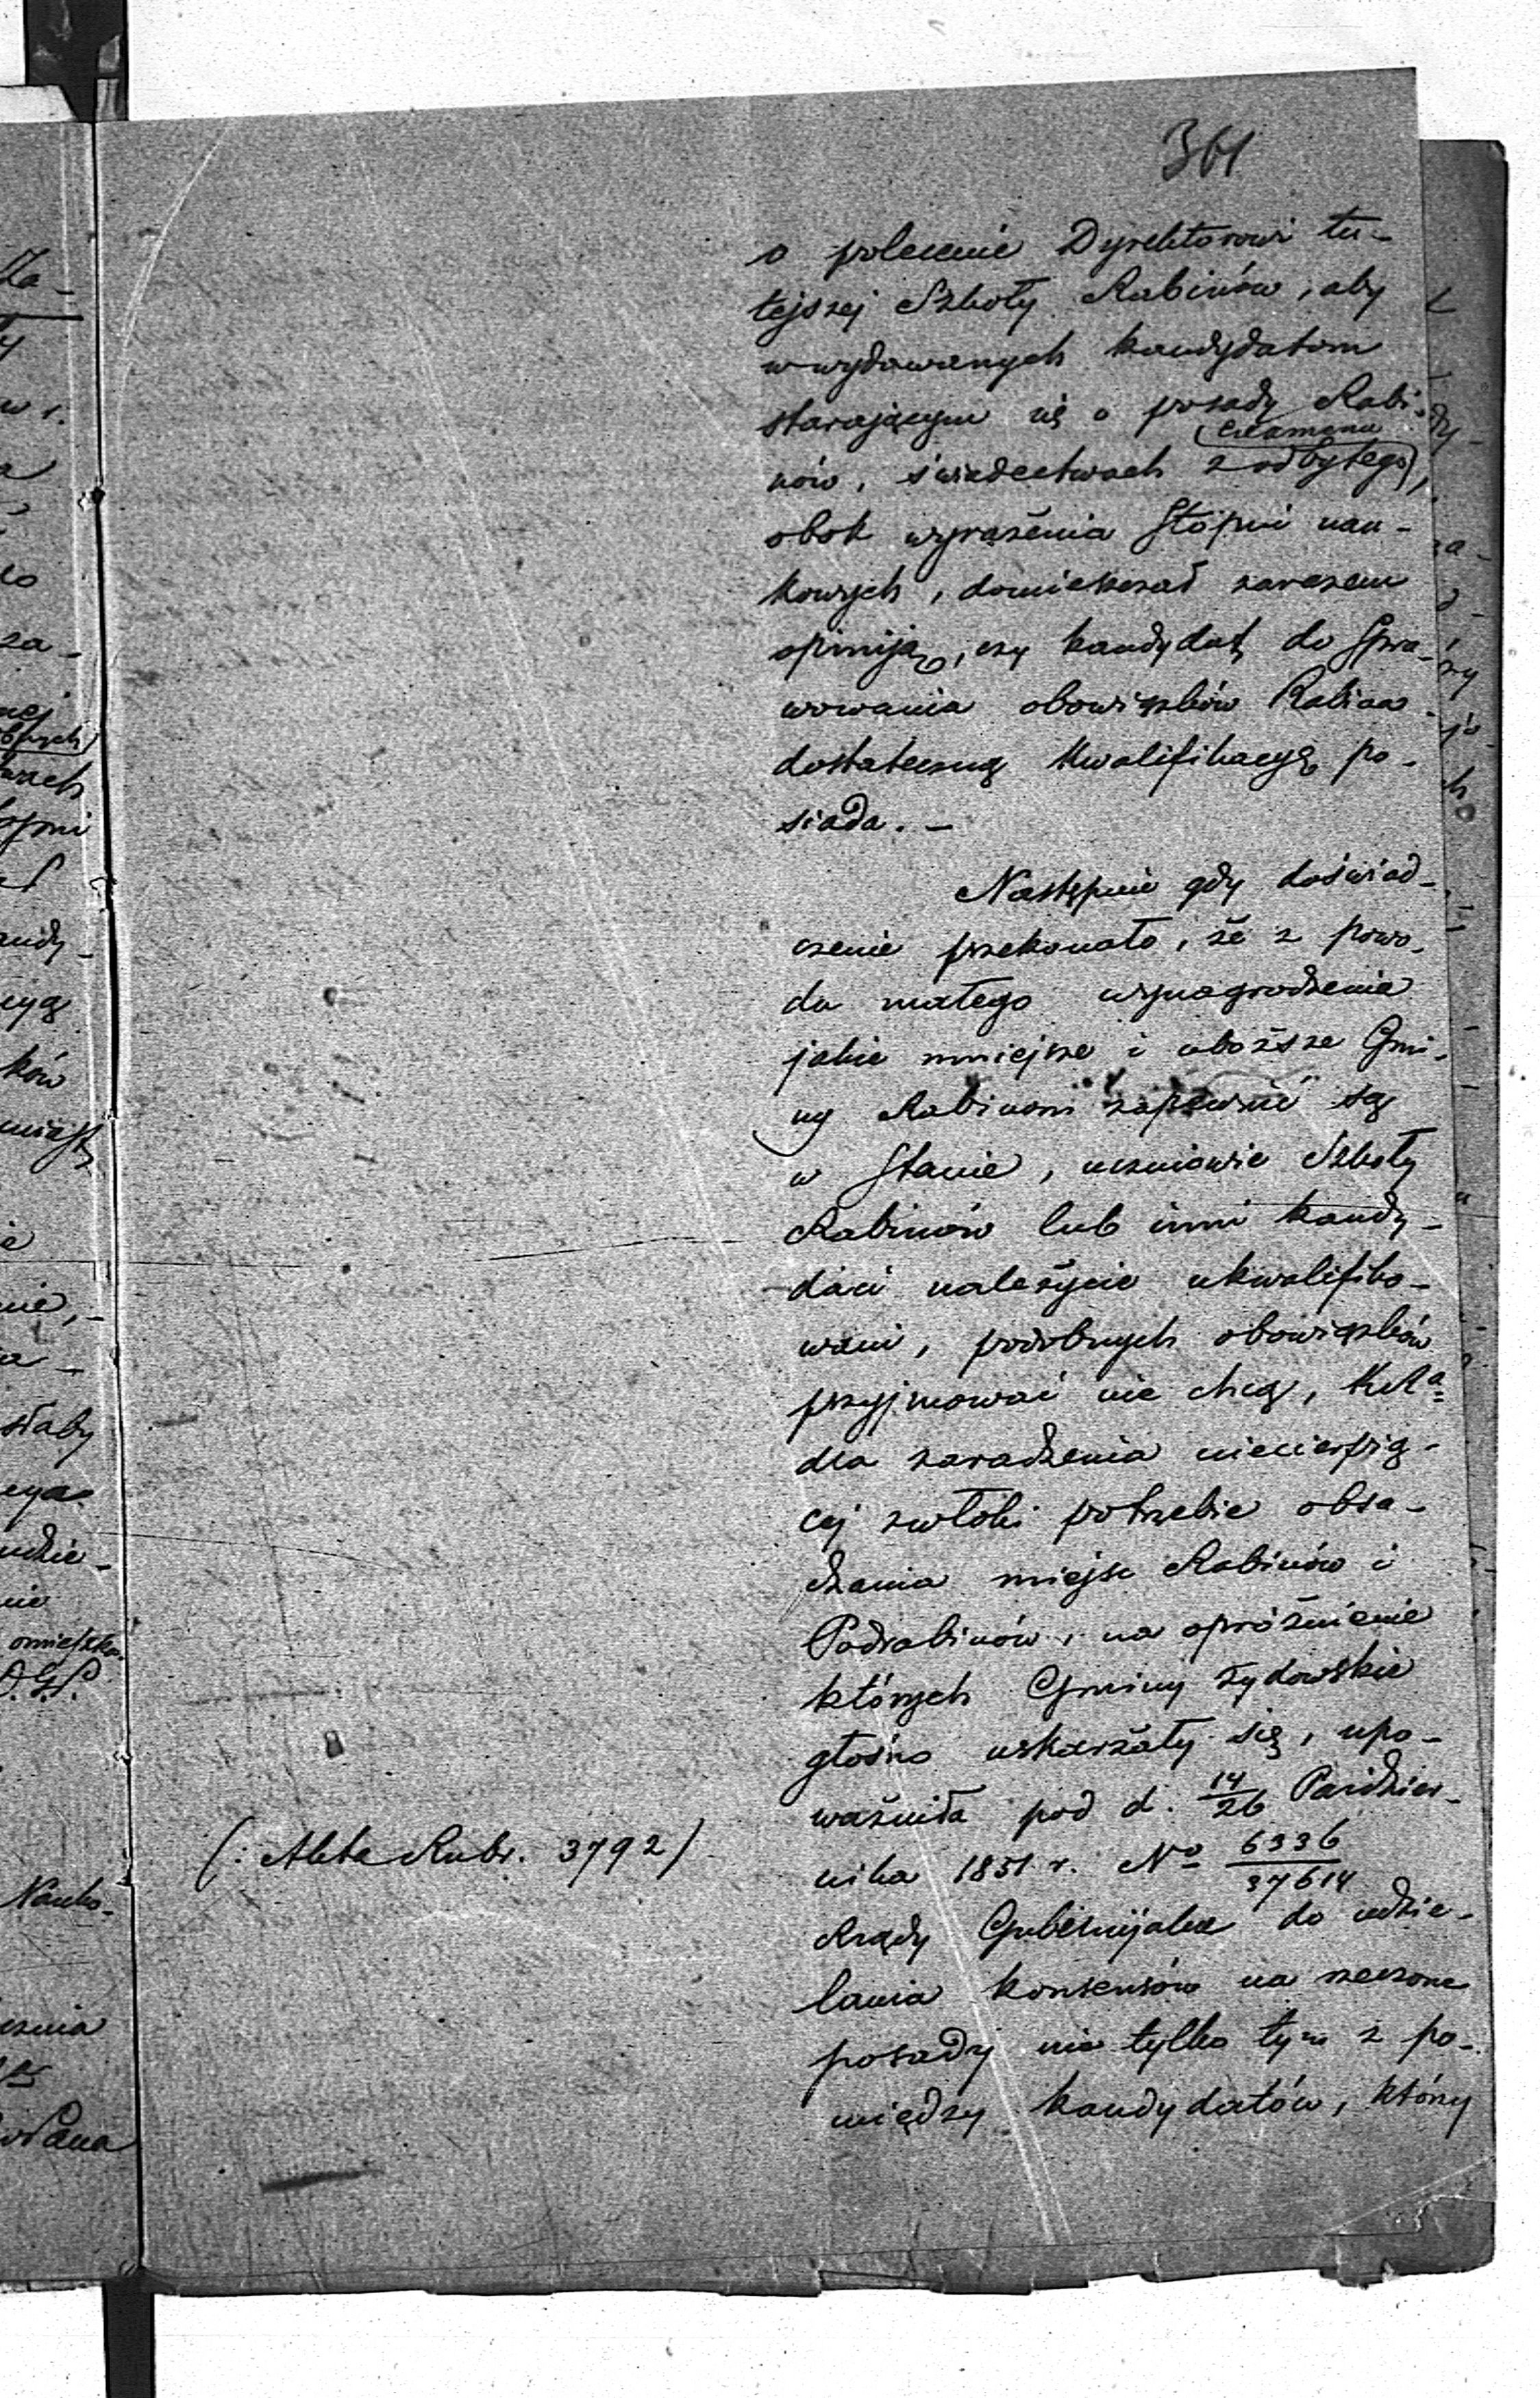 361
o polecenie Dyrektorowi tu-
tejszej Szkoły Rabinów, aby
w wydawanych kandydatom
starającym się o posady Rabi-
nów, świadectwach z odbytego
examenu
obok wyrażenia stopni nau-
kowych, domieszczał zarazem
opiniją, czy kandydat do spra-
wowania obowiązków Rabina
dostateczną kwalifikacyę po-
siada. -
Następnie gdy doświad-
czenie przekonało, że z powo-
du małego wynagrodzenia
jakie mniejsze i uboższe Gmi-
ny Rabinom zapewnić są
w stanie, uczniowie Szkoły
Rabinów lub inni kandy-
daci należycie ukwalifiko-
wani, podobnych obowiązków
przyjmować nie chcą,
dla zaradzenia niecierpią-
cej zwłoki potrzebie obsa-
dzania miejsc Rabinów i
Podrabinów, na opróżnienie
których Gminy żydowskie
głośno uskarżały się, upo-
ważniła pod d. 14/26 Paździer-
nika 1851 r. No 6336/37614
(: Akta Rabr. 3792)
Rządy Gubernijalne do udzie-
lania konsensów na rzeczone
posady nie tylko tym z po-
między kandydatów, którzy